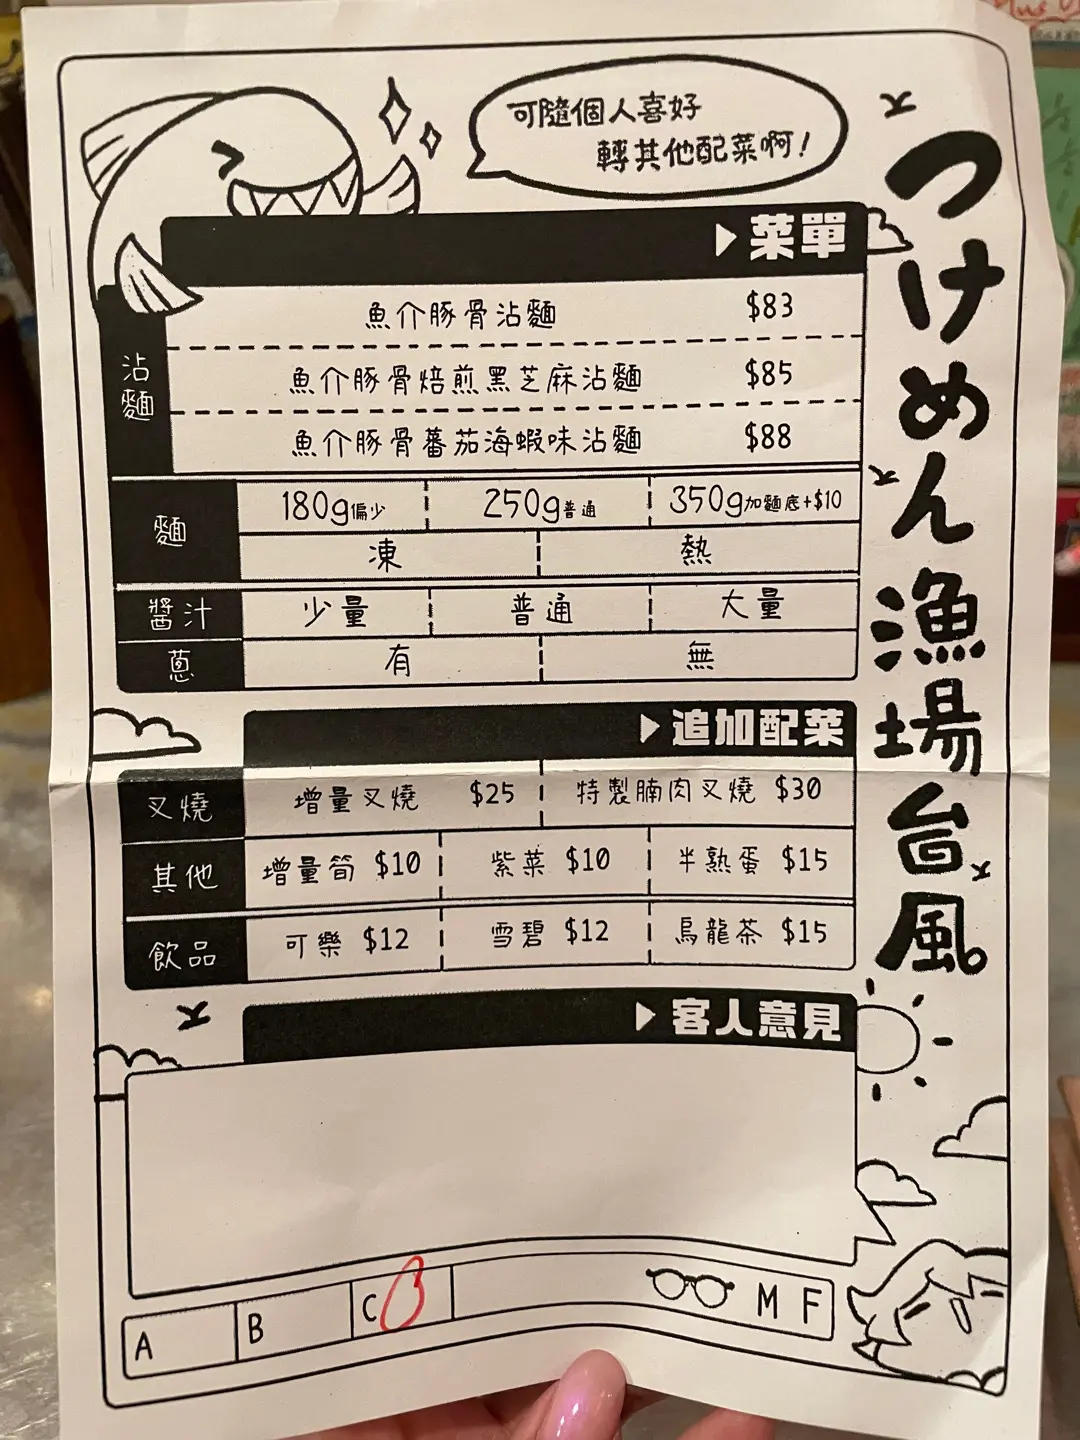 可隨個人喜好
轉其他配菜啊!
つけめん漁場台風
▶菜單
沾麵
魚介豚骨沾麵 $83
魚介豚骨焙煎黑芝麻沾麵 $85
魚介豚骨蕃茄海蝦味沾麵 $88
麵
180g偏少 250g普通 350g加麵底+$10
凍 熱
醬汁 少量 普通 大量
蔥 有 無
▶追加配菜
叉燒 增量叉燒 $25 特製腩肉叉燒 $30
其他 增量筍 $10 紫菜 $10 半熟蛋 $15
飲品 可樂 $12 雪碧 $12 烏龍茶 $15
▶客人意見
A B C M F